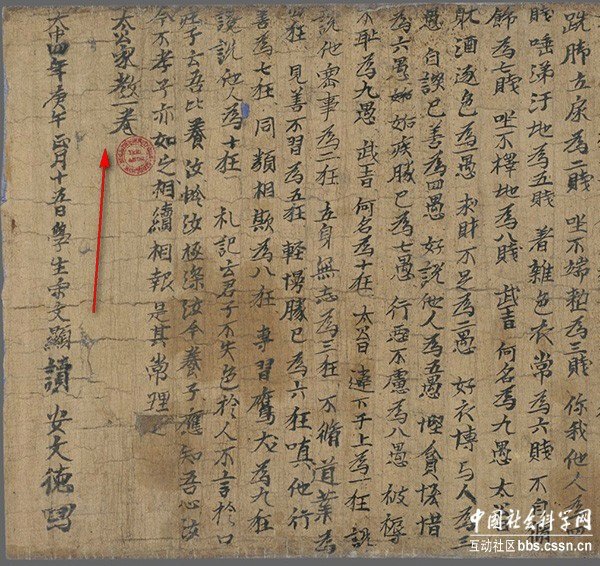 跣脚立尿為二賤 坐不端粧為三賤 你我他人為
賤唾涕汙地為五賤 着雜色衣常為六賤 不自脩
飾為七賤 坐不擇地為八賤 武王曰 何名為九愚 太公
躭酒逐色為一愚 求財不足為二愚 好衣博与人為三
愚 自談己善為四愚 好說他人為五愚 慳貪悋惜
為六愚 妬勝己為七愚 行惡不慮為八愚 被辱
不恥為九愚 武王曰 何名為十狂 太公曰 違下子上為一狂 說
說他密事為二狂 立身無志為三狂 不脩道業為
狂 見善不習為五狂 輕慢勝己為六狂 嗔他行
善為七狂 同類相欺為八狂 專習鷹犬為九狂
說說他人為十狂 札記云君子不失色於人不言於口
莊子云吾比養汝怜汝極深汝今養子應知吾心汝
今不孝子亦如之相續相報是其常理
太公家教一卷
大中四年庚午正月十五日學生宋文顯讀 安文德寫
中国社会科学网
互动社区bbs.cssn.cn